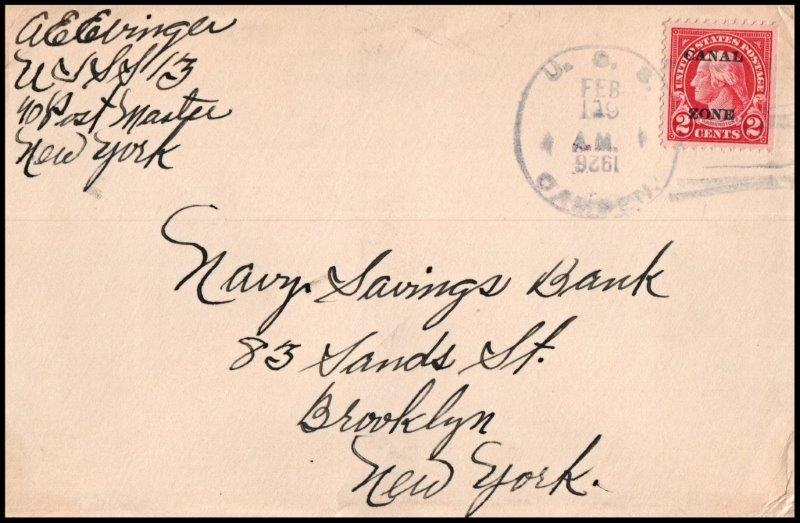 A E Evinger
U S S S 13
℅ Post Master
New York
U. S. S.
FEB
19
A.M.
1926
CAMDEN.
UNITED STATES POSTAGE
CANAL
ZONE
WASHINGTON
2 CENTS 2
Navy Savings Bank
83 Sands St.
Brooklyn
New York.